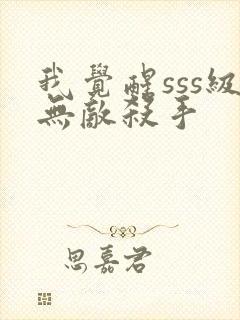 我覺醒sss級
無敵殺手
思嘉君